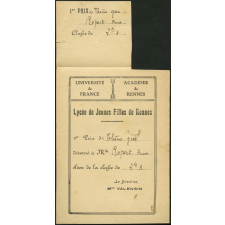 1er PRIX de Thème grec
Classe de 2e A
UNIVERSITÉ de FRANCE
ACADÉMIE de RENNES
Lycée de Jeunes Filles de Rennes
1er Prix de Thème grec
décerné à Mlle
élève de la classe de 2e A
La Directrice,
Mme VALENTIN